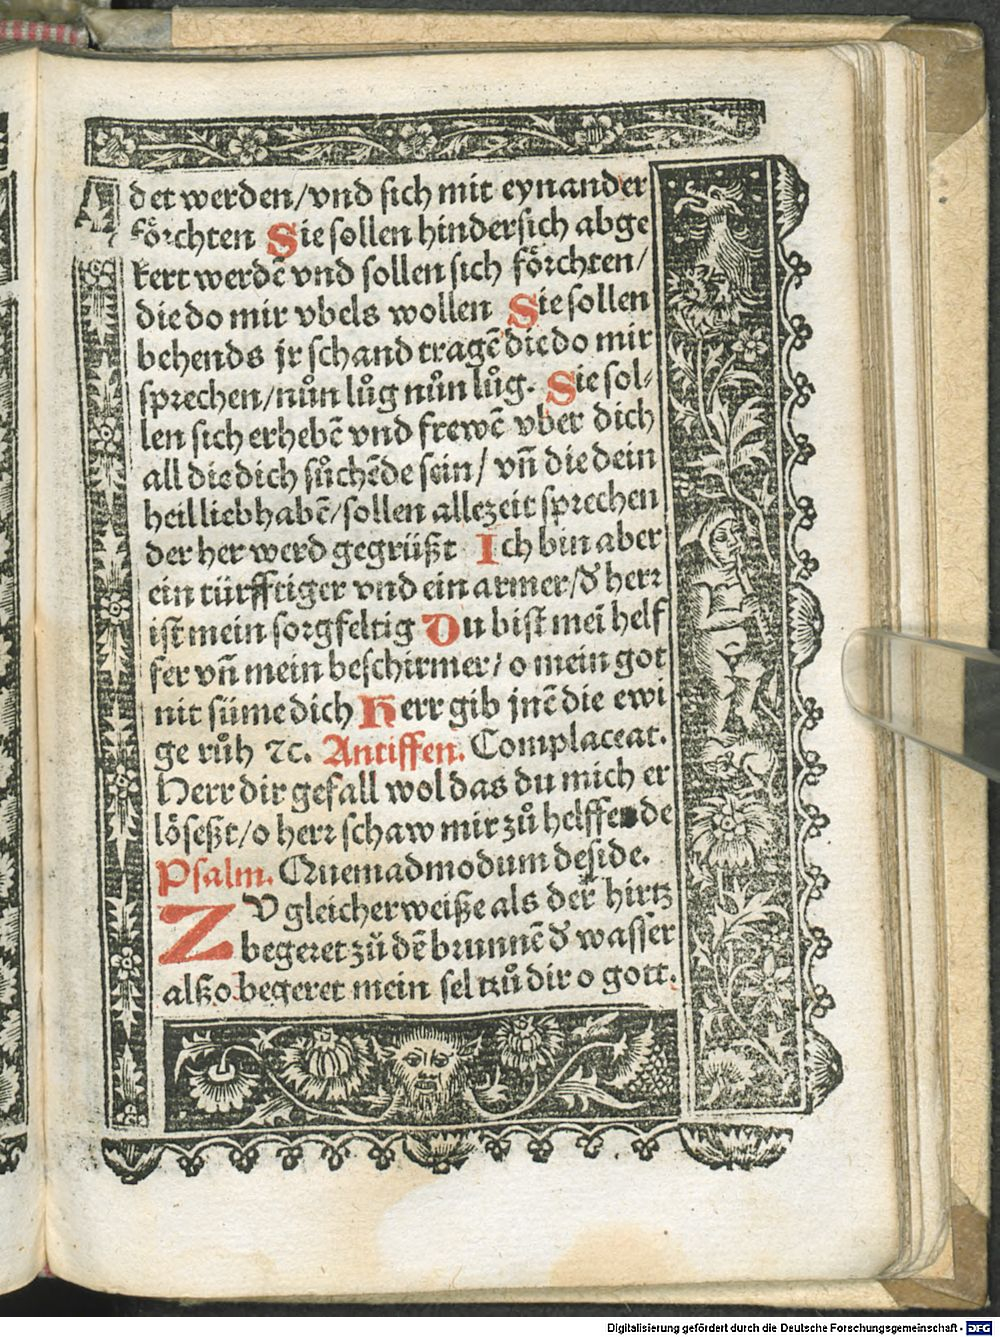 det werden/vnd sich mit eynander
foͤrchten Sie sollen hindersich abge
kert werdē vnd sollen sich foͤrchten/
die do mir vbels wollen Sie sollen
behends jr schand tragē die do mir
sprechen/nuͦn luͦg nuͦn luͦg. Sie sol⸗
len sich erhebē vnd frewē vber dich
all die dich suͦchēde sein/ vñ die dein
heil liebhabē/sollen allezeit sprechen
der her werd gegrüßt Ich bin aber
ein türfftiger vnd ein armer/đ herr
ist mein sorgfeltig Du bist meī helf
fer vñ mein beschirmer/o mein got
nit süme dich Herr gib jnē die ewi
ge ruͦh ⁊c. Antiffen. Complaceat.
Herr dir gefall wol das du mich er
löseßt/o herr schaw mir zuͦ helffende
Psalm. Quemadmodum deside.
ZV gleicherweiße als der hirtz
begeret zuͦ dē brunnē đ wasser
alßo begeret mein sel tzuͦ dir o gott.
Digitalisierung gefördert durch die Deutsche Forschungsgemeinschaft - DFG